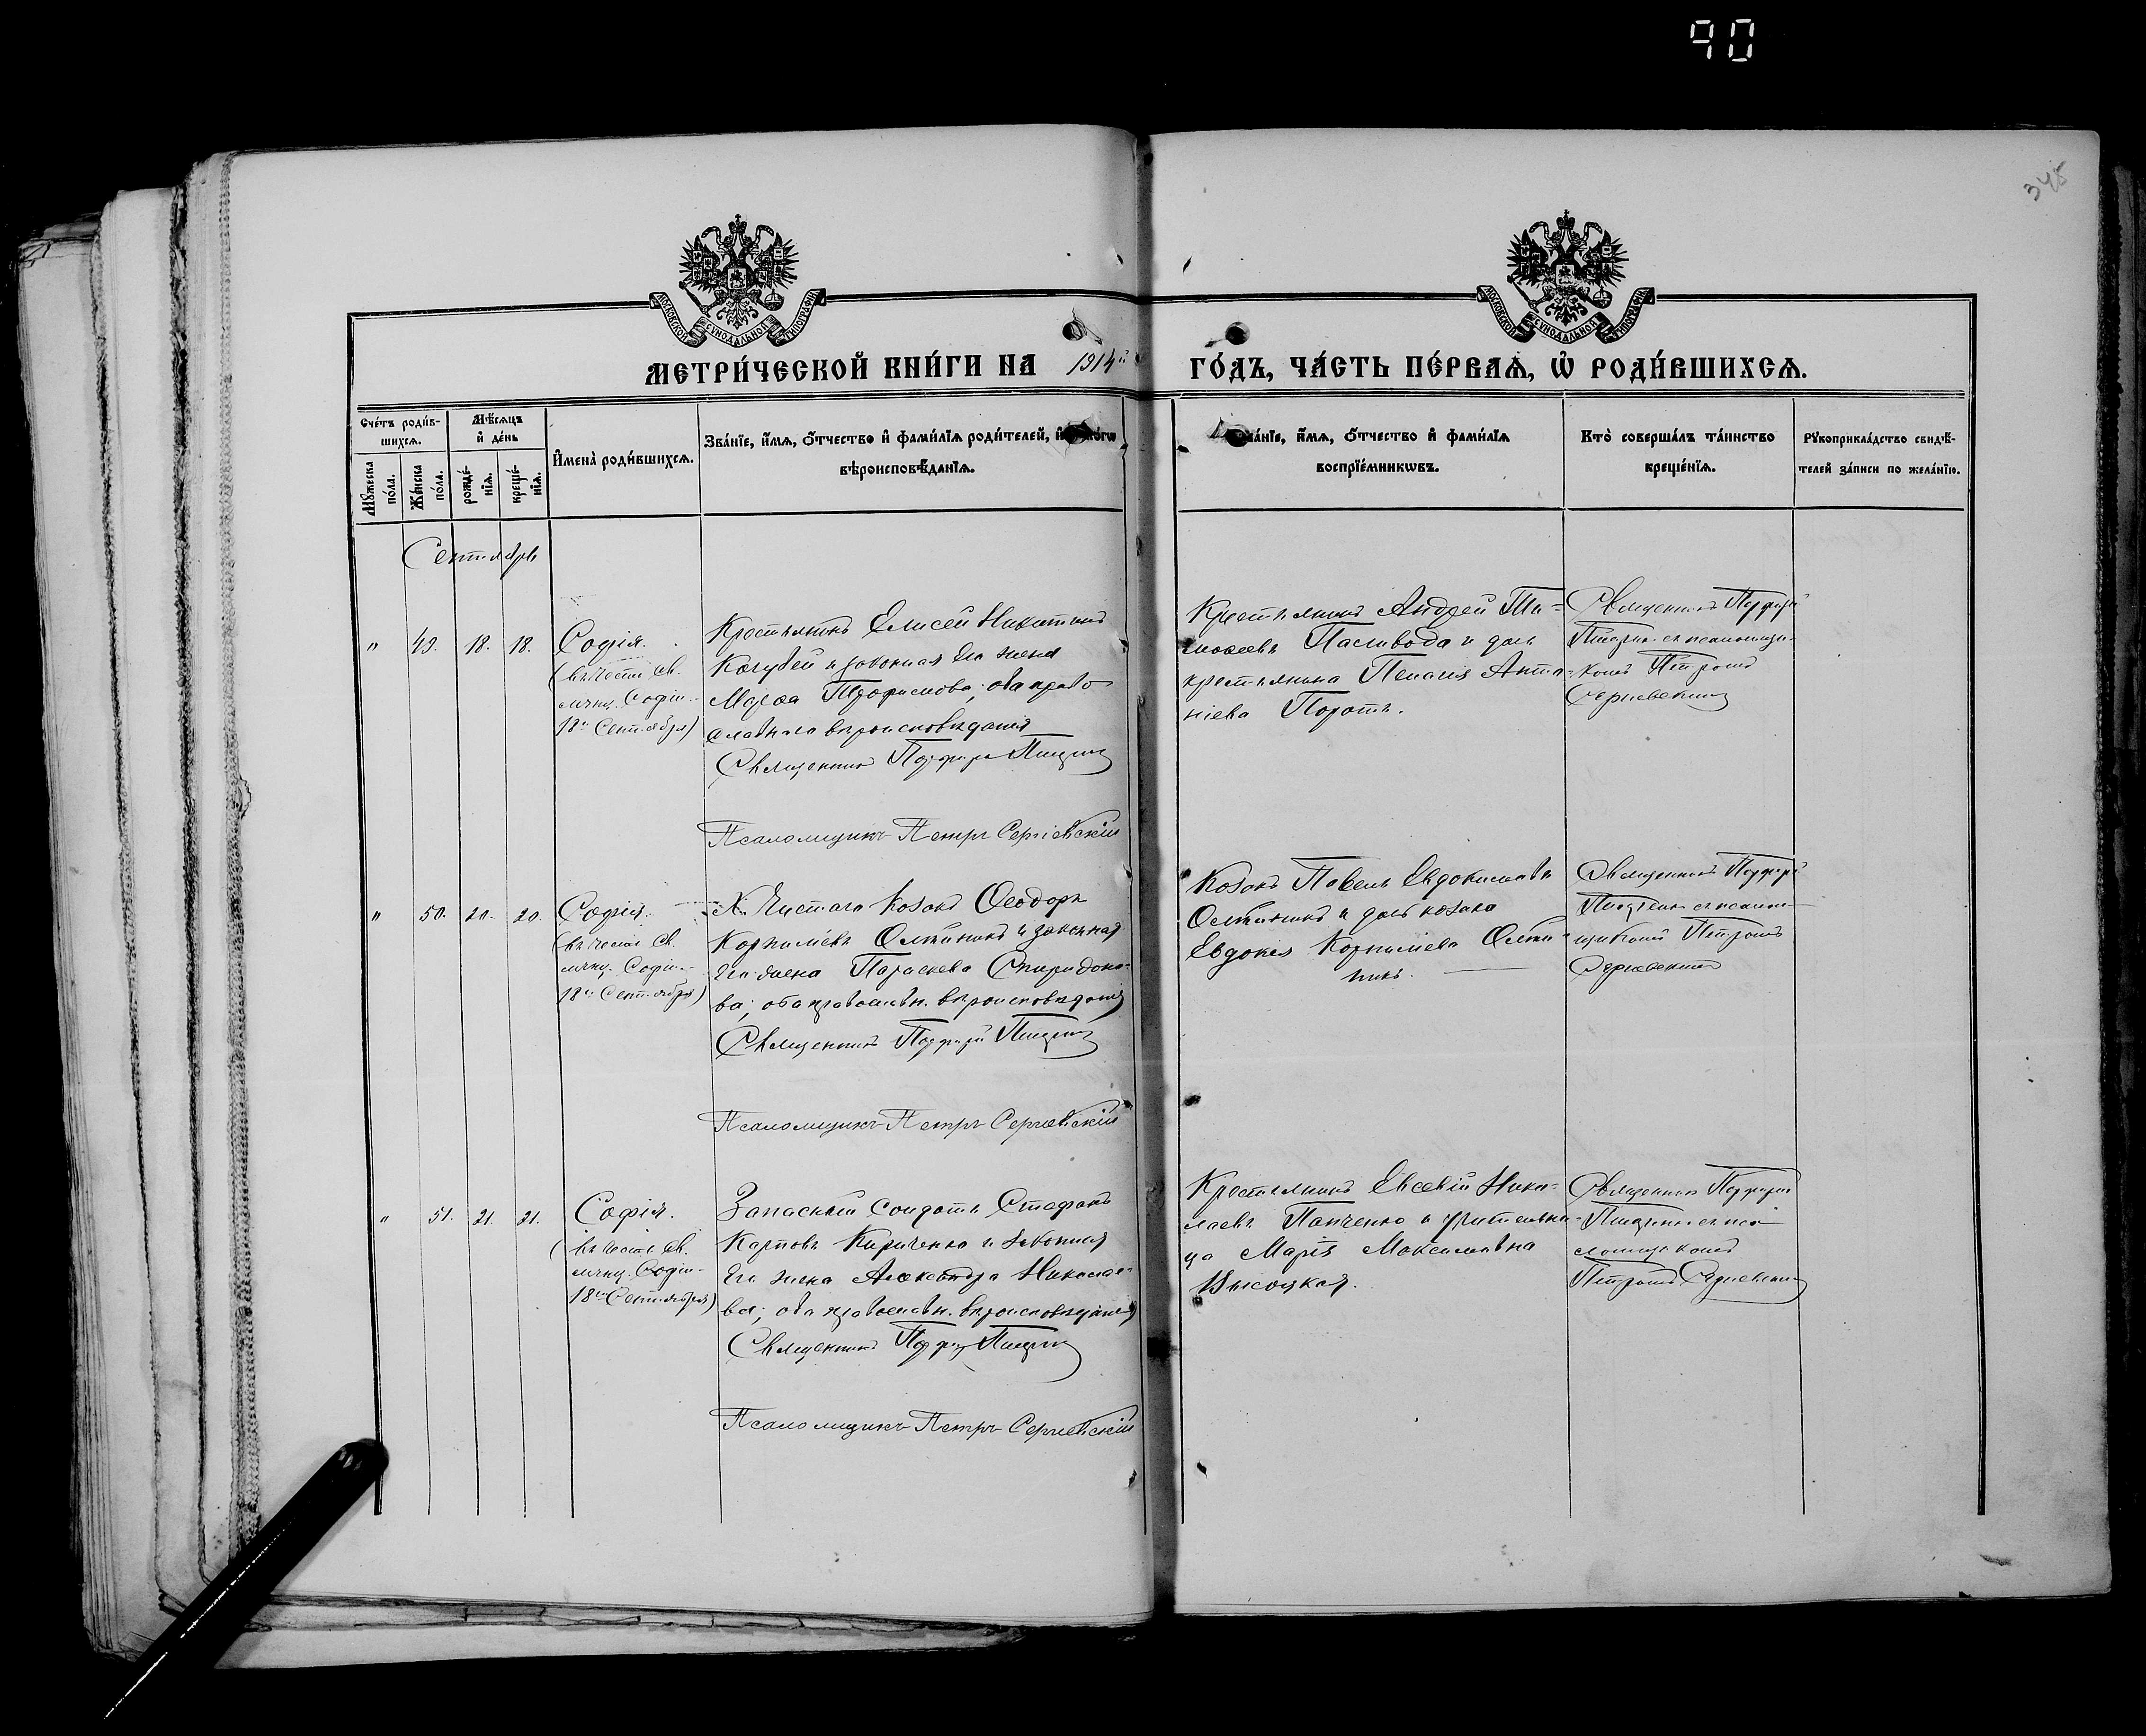 90
345
МОСКОВСКОЙ СѴНОДАЛЬНОЙ ТИПОГРАФІИ
МОСКОВСКОЙ СѴНОДАЛЬНОЙ ТИПОГРАФІИ
МЕТРИ́ЧЕСКОЙ КНИ́ГИ НА 1914й ГО́ДЪ, ЧА́СТЬ ПЕ́РВАѦ, Ѡ҆ РОДИ́ВШИХСѦ.
Сче́тъ роди́в-
шихсѧ.
Мѣ́сѧцъ
и҆ де́нь
Мꙋ́жеска
по́ла.
Же́нска
по́ла.
рожде́-
нїѧ.
креще́-
нїѧ.
И҆мена̀ роди́вшихсѧ.
Зва́нїе, и҆́мѧ, ѻ҆́тчество и҆ фами́лїѧ роди́телей, и҆
вѣроисповѣ́данїѧ.
и҆́мѧ, ѻ҆́тчество и҆ фами́лїѧ
воспрїе́мникѡвъ.
Кто̀ соверша́лъ та́инство
креще́нїѧ.
Рꙋкоприкла́дство свидѣ́-
телей за́писи по жела́нїю.
Сентябрь
" 49. 18. 18. Софія.
(въ честь св.
мчнц. Софіи
18го Сентября)
Крестьянинъ Елисей Никитинъ
Кочубей и законная его жена
Марѳа Трофимова; оба право
славнаго вѣроисповѣданія
Священникъ Порфирій
Псаломщикъ Петръ Сергіевскій
Крестьянинъ Андрей Ти-
моѳеевъ Паливода и дочь
крестьянина Пелагія Анто-
ніева
Священникъ Порфирій
съ псаломщи-
комъ Петромъ
Сергіевскимъ
" 50. 20. 20. Софія.
(въ честь св.
мчнц. Софіи
18го Сентября)
Козакъ Ѳеодоръ
Корниліевъ и законная
его жена Параскева Спиридоно-
ва; оба православн. вѣроисповѣданія
Священникъ Порфирій
Псаломщикъ Петръ Сергіевскій
Козакъ Павелъ Евдокимовъ
и дочь козака
Евдокія Корниліева
Священникъ Порфирій
съ псалом-
щикомъ Петромъ
Сергіевскимъ
" 51. 21. 21. Софія.
(въ честь св.
мчнц. Софіи
18го Сентября)
Запасный солдатъ Стефанъ
Карповъ Кириченко и законная
его жена Александра Николае-
ва; оба православн. вѣроисповѣданія
Священникъ Порфирій
Псаломщикъ Петръ Сергіевскій
Крестьянинъ Евсевій Нико-
лаевъ Панченко и учительни-
ца Марія Максимовна
Высоцкая.
Священникъ Порфирій
съ пса
ломщикомъ
Петромъ Сергіевскимъ